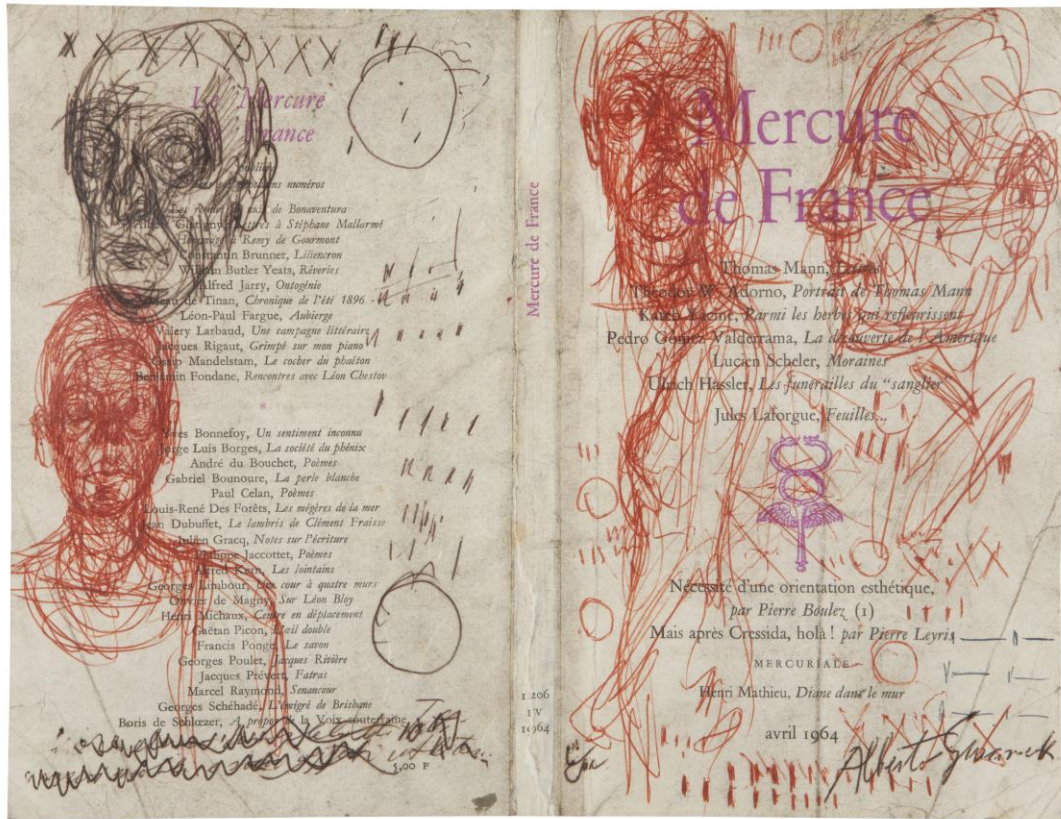 Le Mercure
de France
publiera
dans ses prochains numéros
de Bonaventura
Glatigny, Lettres à Stéphane Mallarmé
Hommage à Remy de Gourmont
Constantin Brunner, Liliencron
William Butler Yeats, Rêveries
Alfred Jarry, Ontogénie
Jean de Tinan, Chronique de l'été 1896
Léon-Paul Fargue, Aubierge
Valery Larbaud, Une campagne littéraire
Jacques Rigaut, Grimpé sur mon piano
Ossip Mandelstam, Le cocher du phaéton
Benjamin Fondane, Rencontres avec Léon Chestov
Yves Bonnefoy, Un sentiment inconnu
Jorge Luis Borges, La société du phénix
André du Bouchet, Poèmes
Gabriel Bounoure, La perle blanche
Paul Celan, Poèmes
Louis-René Des Forêts, Les mégères de la mer
Jean Dubuffet, Le lambris de Clément Fraisse
Julien Gracq, Notes sur l'écriture
Philippe Jaccottet, Poèmes
Alfred Kern, Les lointains
Georges Limbour, Une cour à quatre murs
Olivier de Magny, Sur Léon Bloy
Henri Michaux, Centre en déplacement
Gaëtan Picon, L'œil double
Francis Ponge, Le savon
Georges Poulet, Jacques Rivière
Jacques Prévert, Fatras
Marcel Raymond, Senancour
Georges Schéhadé, L'émigré de Brisbane
Boris de Schlœzer, A propos de la Voix souterraine
5,00 F
Mercure de France
1 206
IV
1964
Mercure
de France
Thomas Mann, Lettres
Theodor W. Adorno, Portrait de Thomas Mann
Kateb Yacine, Parmi les herbes qui refleurissent
Pedro Gómez Valderrama, La découverte de l'Amérique
Lucien Scheler, Moraines
Ulrich Hassler, Les funérailles du "sanglier"
Jules Laforgue, Feuilles...
Nécessité d'une orientation esthétique,
par Pierre Boulez (1)
Mais après Cressida, holà ! par Pierre Leyris
MERCURIALE
Henri Mathieu, Diane dans le mur
avril 1964
Alberto Giacometti